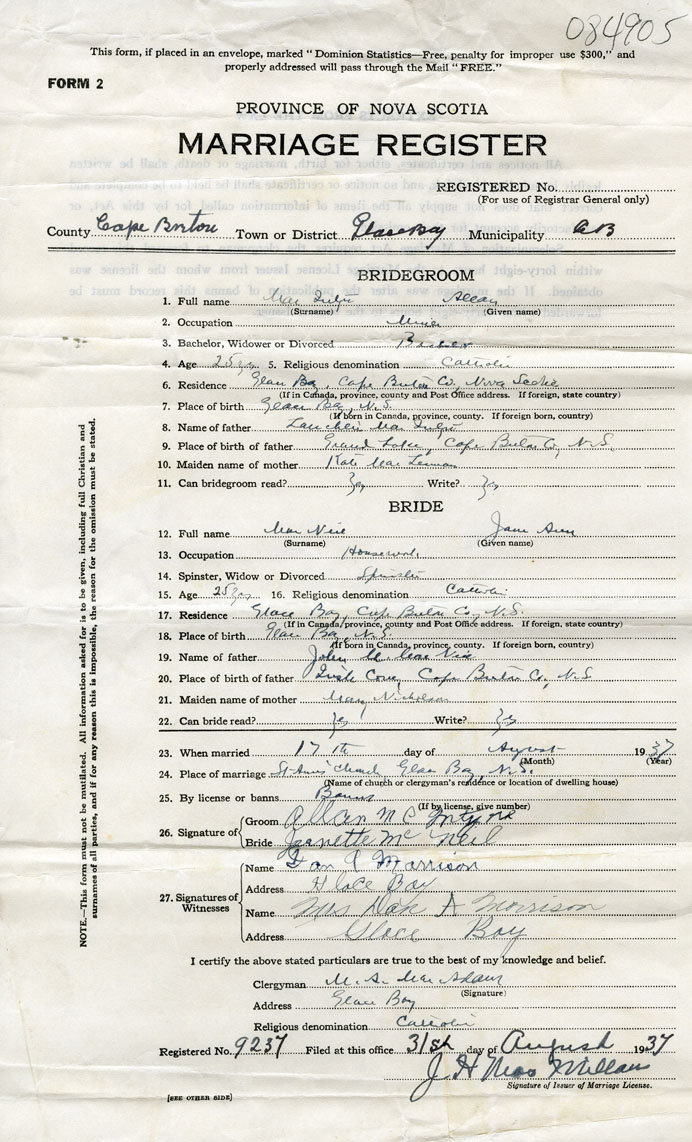 084905
This form, if placed in an envelope, marked "Dominion Statistics—Free, penalty for improper use $300," and
properly addressed will pass through the Mail "FREE."
FORM 2
PROVINCE OF NOVA SCOTIA
MARRIAGE REGISTER
REGISTERED No.
(For use of Registrar General only)
County Cape Breton Town or District Glace Bay Municipality C B
BRIDEGROOM
1. Full name Mac Intyre Allan
(Surname) (Given name)
2. Occupation Miner
3. Bachelor, Widower or Divorced Bachelor
4. Age 25 yrs 5. Religious denomination Catholic
6. Residence Glace Bay, Cape Breton Co., Nova Scotia
(If in Canada, province, county and Post Office address. If foreign, state country)
7. Place of birth Glace Bay, N.S.
(If born in Canada, province, county. If foreign born, country)
8. Name of father Lauchlin Mac Intyre
9. Place of birth of father Grand Lake, Cape Breton Co., N.S.
10. Maiden name of mother Kate Mac Lennan
11. Can bridegroom read? Yes Write? Yes
BRIDE
12. Full name Mac Neil Jane Ann
(Surname) (Given name)
13. Occupation Housework
14. Spinster, Widow or Divorced Spinster
15. Age 25 yrs 16. Religious denomination Catholic
17. Residence Glace Bay, Cape Breton Co., N.S.
(If in Canada, province, county and Post Office address. If foreign, state country)
18. Place of birth Glace Bay, N.S.
(If born in Canada, province, county. If foreign born, country)
19. Name of father John Mac Neil
20. Place of birth of father Irish Cove, Cape Breton Co., N.S.
21. Maiden name of mother Mary Nicholson
22. Can bride read? Yes Write? Yes
23. When married 17th day of August 1937
(Month) (Year)
24. Place of marriage St Ann's Church, Glace Bay, N.S.
(Name of church or clergyman's residence or location of dwelling house)
25. By license or banns Banns
(If by license, give number)
26. Signature of Groom Allan Mc Intyre
Bride Jeanette Mc Neil
27. Signatures of Witnesses
Name Dan A Morrison
Address Glace Bay
Name Mrs Dan A Morrison
Address Glace Bay
I certify the above stated particulars are true to the best of my knowledge and belief.
Clergyman M. A. Mac Adam
(Signature)
Address Glace Bay
Religious denomination Catholic
Registered No. 9237 Filed at this office 31st day of August 1937
J. H. Mac Millan
Signature of Issuer of Marriage License.
[SEE OTHER SIDE]
NOTE.—This form must not be mutilated. All information asked for is to be given, including full Christian and
surnames of all parties, and if for any reason this is impossible, the reason for the omission must be stated.